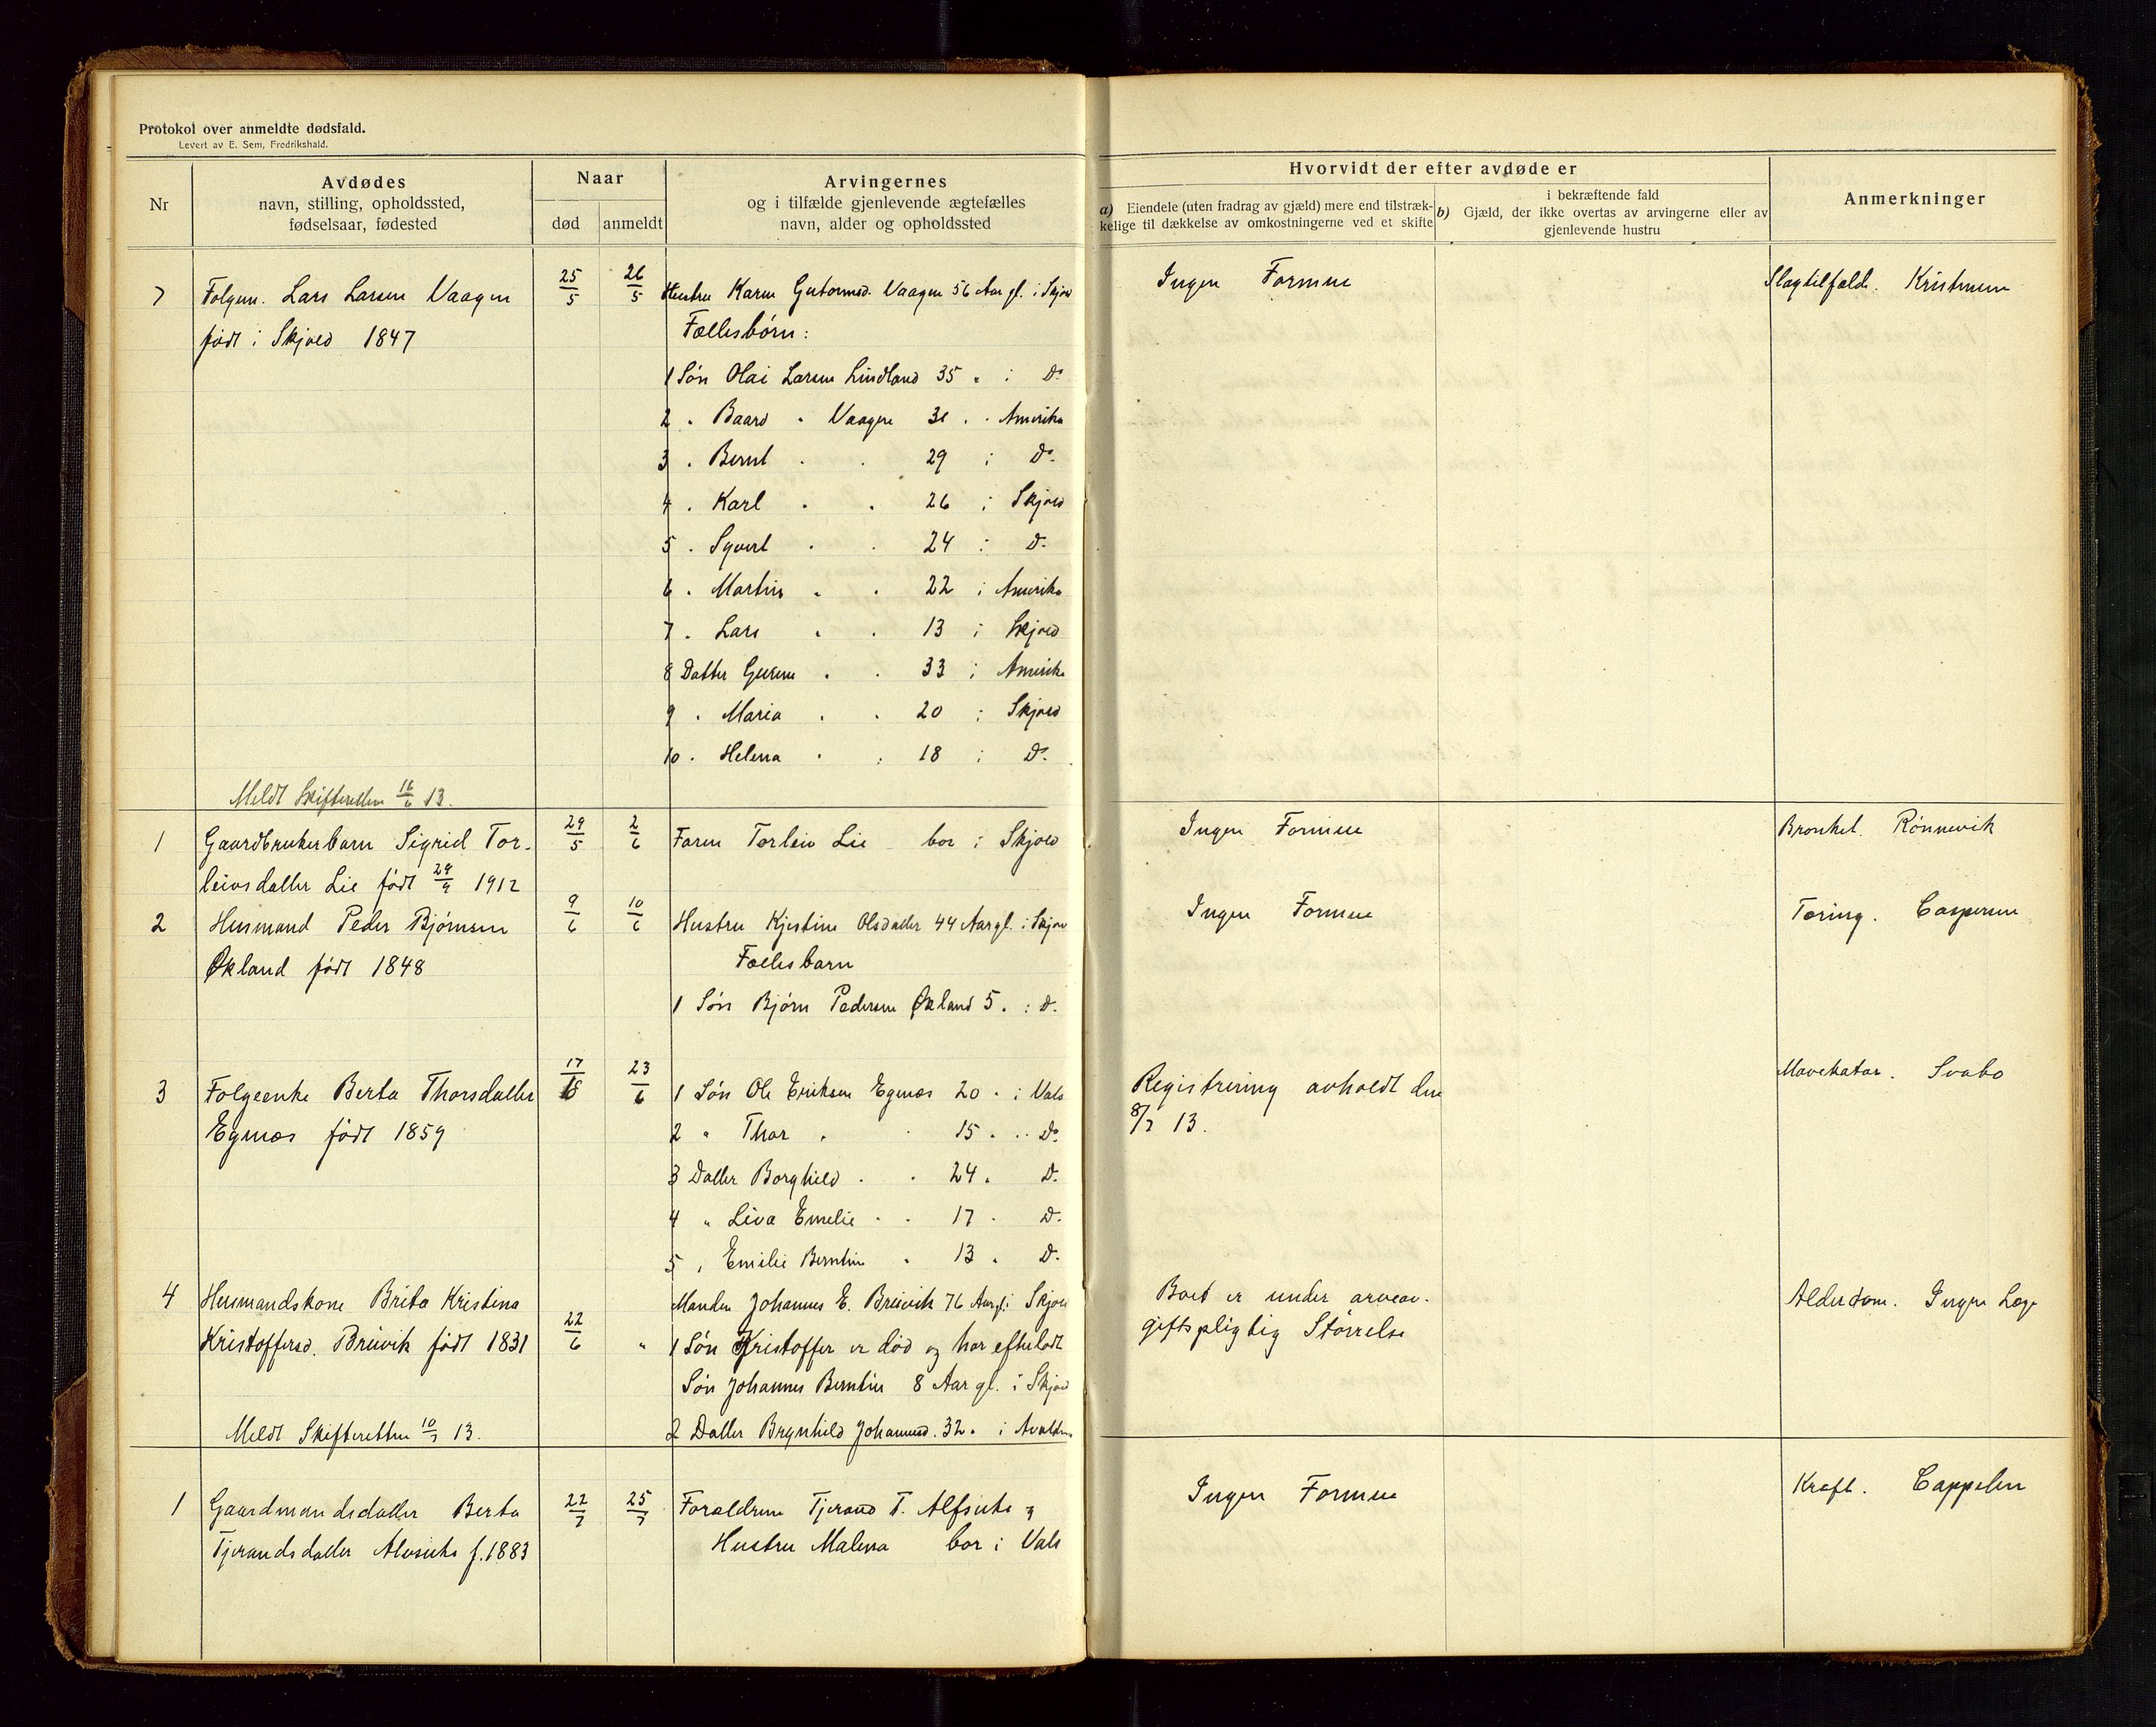 Protokol over anmeldte dødsfald.
Levert av E. Sem, Fredrikshald.
Nr
Avdødes
navn, stilling, opholdssted,
fødselsaar, fødested
Naar
død
anmeldt
Arvingernes
og i tilfælde gjenlevende ægtefælles
navn, alder og opholdssted
Hvorvidt der efter avdøde er
a) Eiendele (uten fradrag av gjæld) mere end tilstræk-
kelige til dækkelse av omkostningerne ved et skifte
i bekræftende fald
b) Gjæld, der ikke overtas av arvingerne eller av
gjenlevende hustru
Anmerkninger
7 Folgem. Lars Larsen Vaagen 25/5 26/5 Hustru Karen Gutormsd. Vaagen 56 Aar gl. i Skjold Ingen Formue Slagtilfæld.
født i Skjold 1847 Fællesbørn:
1 Søn Olai Larsen Lindland 35 " i Do
2 " Baard " Vaagen 31 " " Amerika
3 " Bernt " " 29 i Do
4 " Karl " " 26 i Skjold
5 " Syvert " " 24 i Do
6 " Martin " " 22 i Amerika
7 " Lars " " 13 i Skjold
8 Datter Gurine " " 33 i Amerika
9 " Maria " " 20 i Skjold
10 " Helena " " 18 i Do
Meldt Skifteretten 16/6 13.
1 Gaardbrukerbarn Sigrid Tor- 29/5 2/6 Faren Torleiv Lie bor i Skjold Ingen Formue Bronkit. Rønnevik
leivsdatter Lie født 29/9 1912
2 Husmand Peder Bjørnsen 9/6 10/6 Hustru Kjestine Olsdatter 44 Aar gl. i Skjold Ingen Formue Tæring. Caspersen
Økland født 1848 Fællesbarn
1 Søn Bjørn Pedersen Økland 5 " i Do
3 Folgeenke Berta Thorsdatter 17/6 23/6 1 Søn Ole Eriksen Egnæs 20 " i Vats Registrering avholdt den Mavekatar. Svabo
Egnæs født 1859 2 " Thor " " 15 " " Do 8/7 13.
3 Datter Borghild " " 24 " Do
4 " Liva Emelie " " 17 " Do
5 " Emilie Berntine " 13 " Do
4 Husmandskone Brita Kristina Manden Johannes E. Breivik 76 Aar gl. i Skjold Boet er under arveav- Alderdom. Ingen Læge
Kristoffersd. Breivik født 1831 22/6 " 1 Søn Kristoffer er død og har efterladt giftspligtig Størrelse
Søn Johannes Berntin 8 Aar gl. i Skjold
Meldt Skifteretten 10/7 13. 2 Datter Brynhild Johannesd. 32 " i
1 Gaardmandsdatter Berta 22/7 25/7 Forældrene Tjerand T. Alfsvåg og Ingen Formue Kræft. Cappelen
Tjerandsdatter f. 1883 Hustru Malena bor i Vats